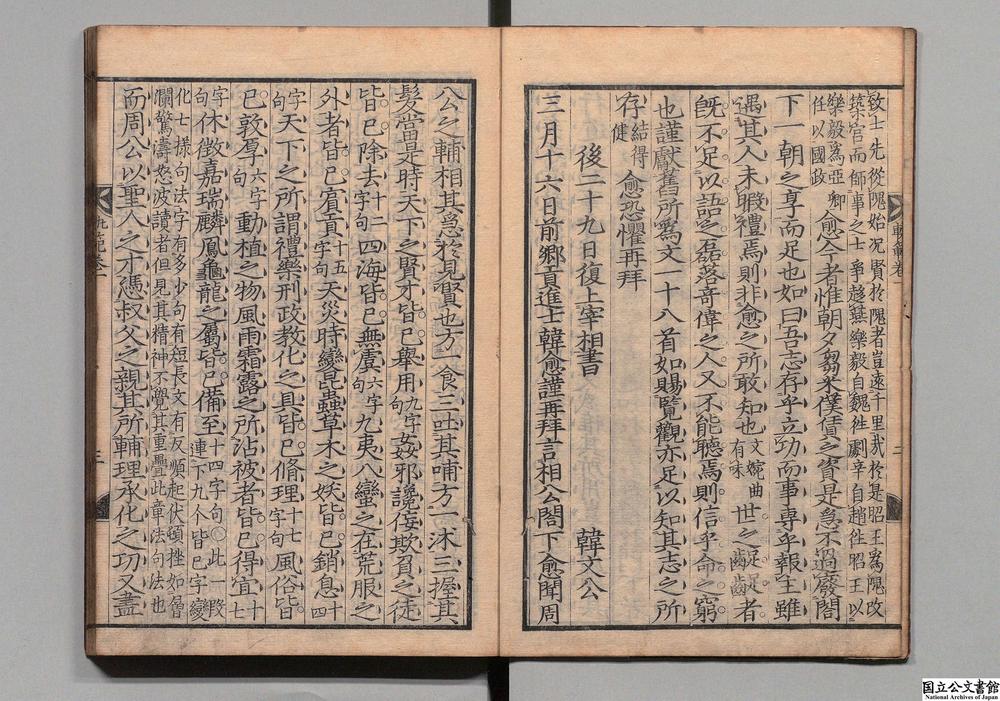 致士先從隗始况賢於隗者豈遠千里哉於是昭王爲隗改
築宮而師事之士爭趍燕樂毅自魏徃劇辛自趙徃昭王以
樂毅爲亞卿
任以國政
愈今者惟朝夕芻米僕賃之資是急不過費閤
下一朝之享而足也如曰吾志存乎立功而事專乎報主雖
遇其人未暇禮焉則非愈之所敢知也
文婉曲
有味
世之齪齪者
旣不足以語之磊落竒偉之人又不能聽焉則信乎命之窮
也謹獻舊所爲文一十八首如賜覽觀亦足以知其志之所
存
結得
健
愈恐懼再拜
後二十九日復上宰相書
韓文公
三月十六日前鄉貢進士韓愈謹再拜言相公閤下愈聞周
公之輔相其急於見賢也方一食三吐其哺方一沐三握其
髮當是時天下之賢才皆已舉用
九字
句
姦邪讒佞欺負之徒
皆已除去
十二
字句
四海皆已無虞
六字
句
九夷八蠻之在荒服之
外者皆已賓貢
十五
字句
天災時變昆蟲草木之妖皆已銷息
十四
字句
天下之所謂禮樂刑政教化之具皆已脩理
十七
字句
風俗皆
已敦厚
六字
句
動植之物風雨霜露之所沾被者皆已得宜
十七
字句
休徴嘉瑞麟鳳龜龍之屬皆已備至
十四字句○此一段
連下九个皆已字變
化七樣句法字有多少句有短長文有反順起伏頓挫如層
瀾驚濤怒波讀者但見其精神不覺其重疊此章法句法也
而周公以聖人之才憑叔父之親其所輔理承化之功又盡
軌範卷一
二
軌範卷一
三
国立公文書館
National Archives of Japan